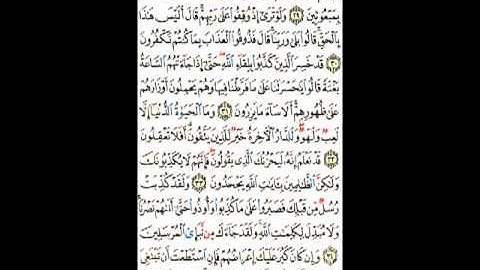 بِمَبْعُوثِينَ ٢٩ وَلَوْ تَرَىٰ إِذْ وُقِفُوا عَلَىٰ رَبِّهِمْ قَالَ أَلَيْسَ هَٰذَا
بِالْحَقِّ قَالُوا بَلَىٰ وَرَبِّنَا قَالَ فَذُوقُوا الْعَذَابَ بِمَا كُنْتُمْ تَكْفُرُونَ
٣٠ قَدْ خَسِرَ الَّذِينَ كَذَّبُوا بِلِقَاءِ اللَّهِ حَتَّىٰ إِذَا جَاءَتْهُمُ السَّاعَةُ
بَغْتَةً قَالُوا يَا حَسْرَتَنَا عَلَىٰ مَا فَرَّطْنَا فِيهَا وَهُمْ يَحْمِلُونَ أَوْزَارَهُمْ
عَلَىٰ ظُهُورِهِمْ أَلَا سَاءَ مَا يَزِرُونَ ٣١ وَمَا الْحَيَاةُ الدُّنْيَا إِلَّا
لَعِبٌ وَلَهْوٌ وَلَلدَّارُ الْآخِرَةُ خَيْرٌ لِلَّذِينَ يَتَّقُونَ أَفَلَا تَعْقِلُونَ
٣٢ قَدْ نَعْلَمُ إِنَّهُ لَيَحْزُنُكَ الَّذِي يَقُولُونَ فَإِنَّهُمْ لَا يُكَذِّبُونَكَ
وَلَٰكِنَّ الظَّالِمِينَ بِآيَاتِ اللَّهِ يَجْحَدُونَ ٣٣ وَلَقَدْ كُذِّبَتْ
رُسُلٌ مِنْ قَبْلِكَ فَصَبَرُوا عَلَىٰ مَا كُذِّبُوا وَأُوذُوا حَتَّىٰ أَتَاهُمْ نَصْرُنَا
وَلَا مُبَدِّلَ لِكَلِمَاتِ اللَّهِ وَلَقَدْ جَاءَكَ مِنْ نَبَإِ الْمُرْسَلِينَ
٣٤ وَإِنْ كَانَ كَبُرَ عَلَيْكَ إِعْرَاضُهُمْ فَإِنِ اسْتَطَعْتَ أَنْ تَبْتَغِيَ